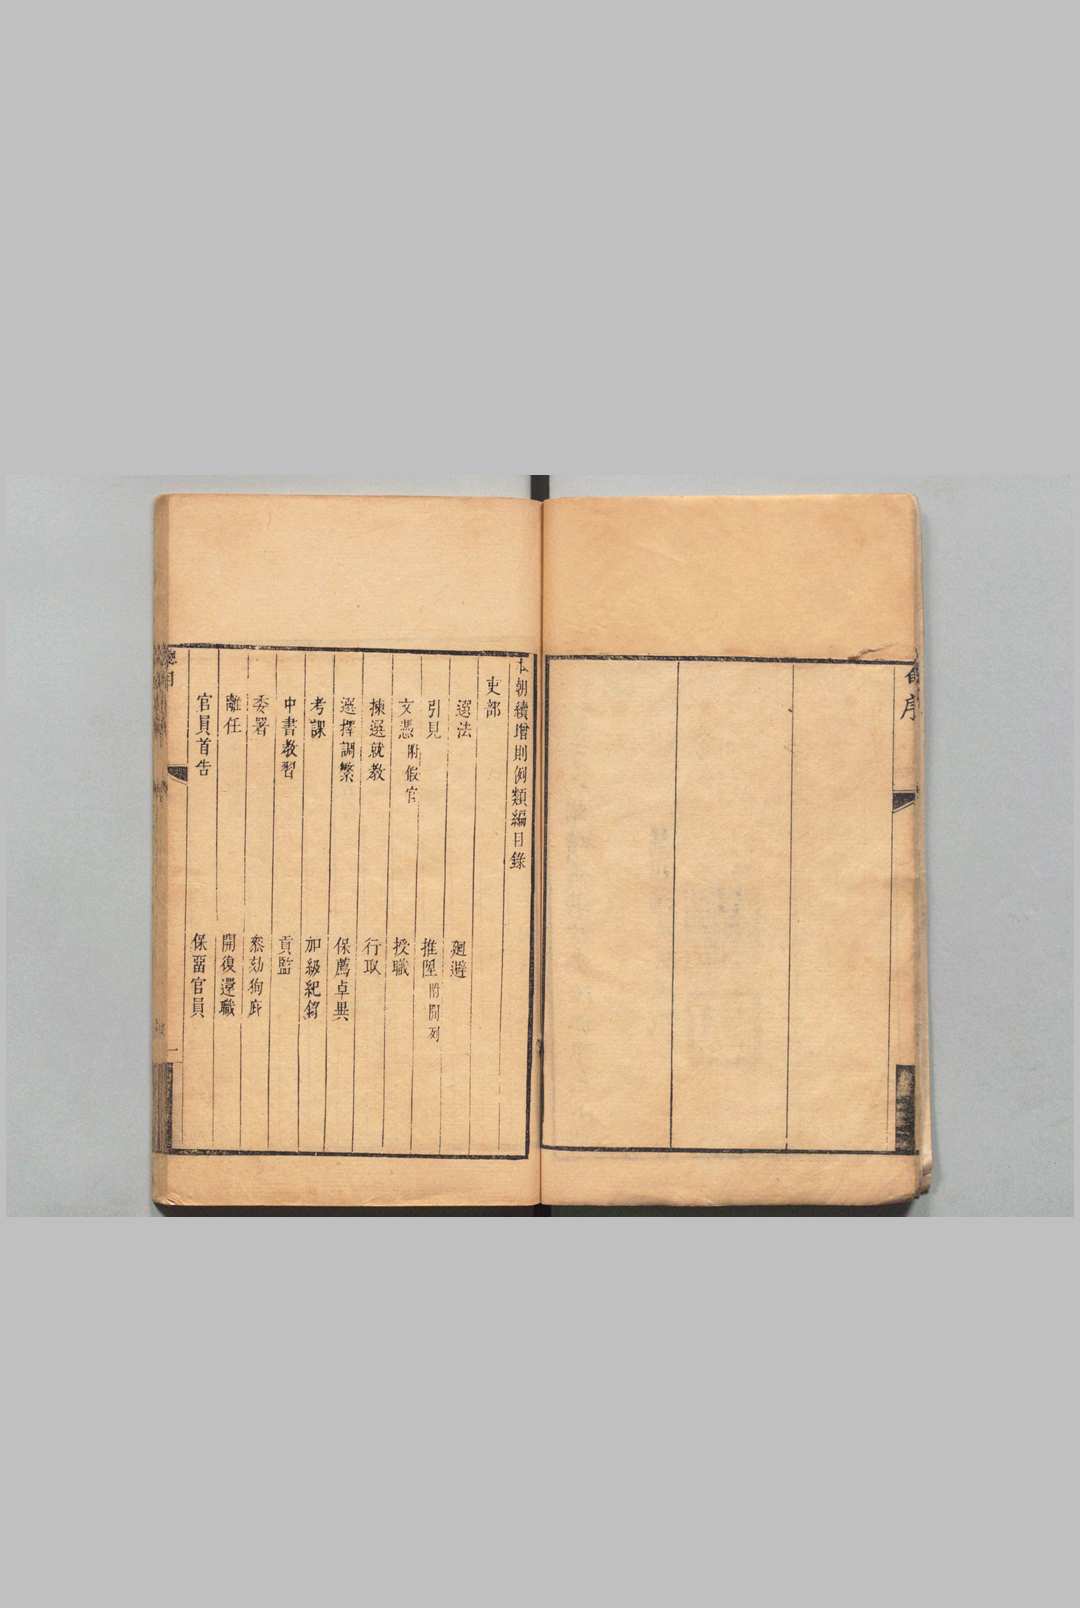 序
本朝續增則例類編目錄
吏部
選法
廻避
引見
推陞附開列
文憑附假官
授職
揀選就教
行取
選擇調繁
保薦卓異
考課
加級紀錄
中書教習
貢監
委署
叅劾狥庇
離任
開復還職
官員首告
保畱官員
總目
一